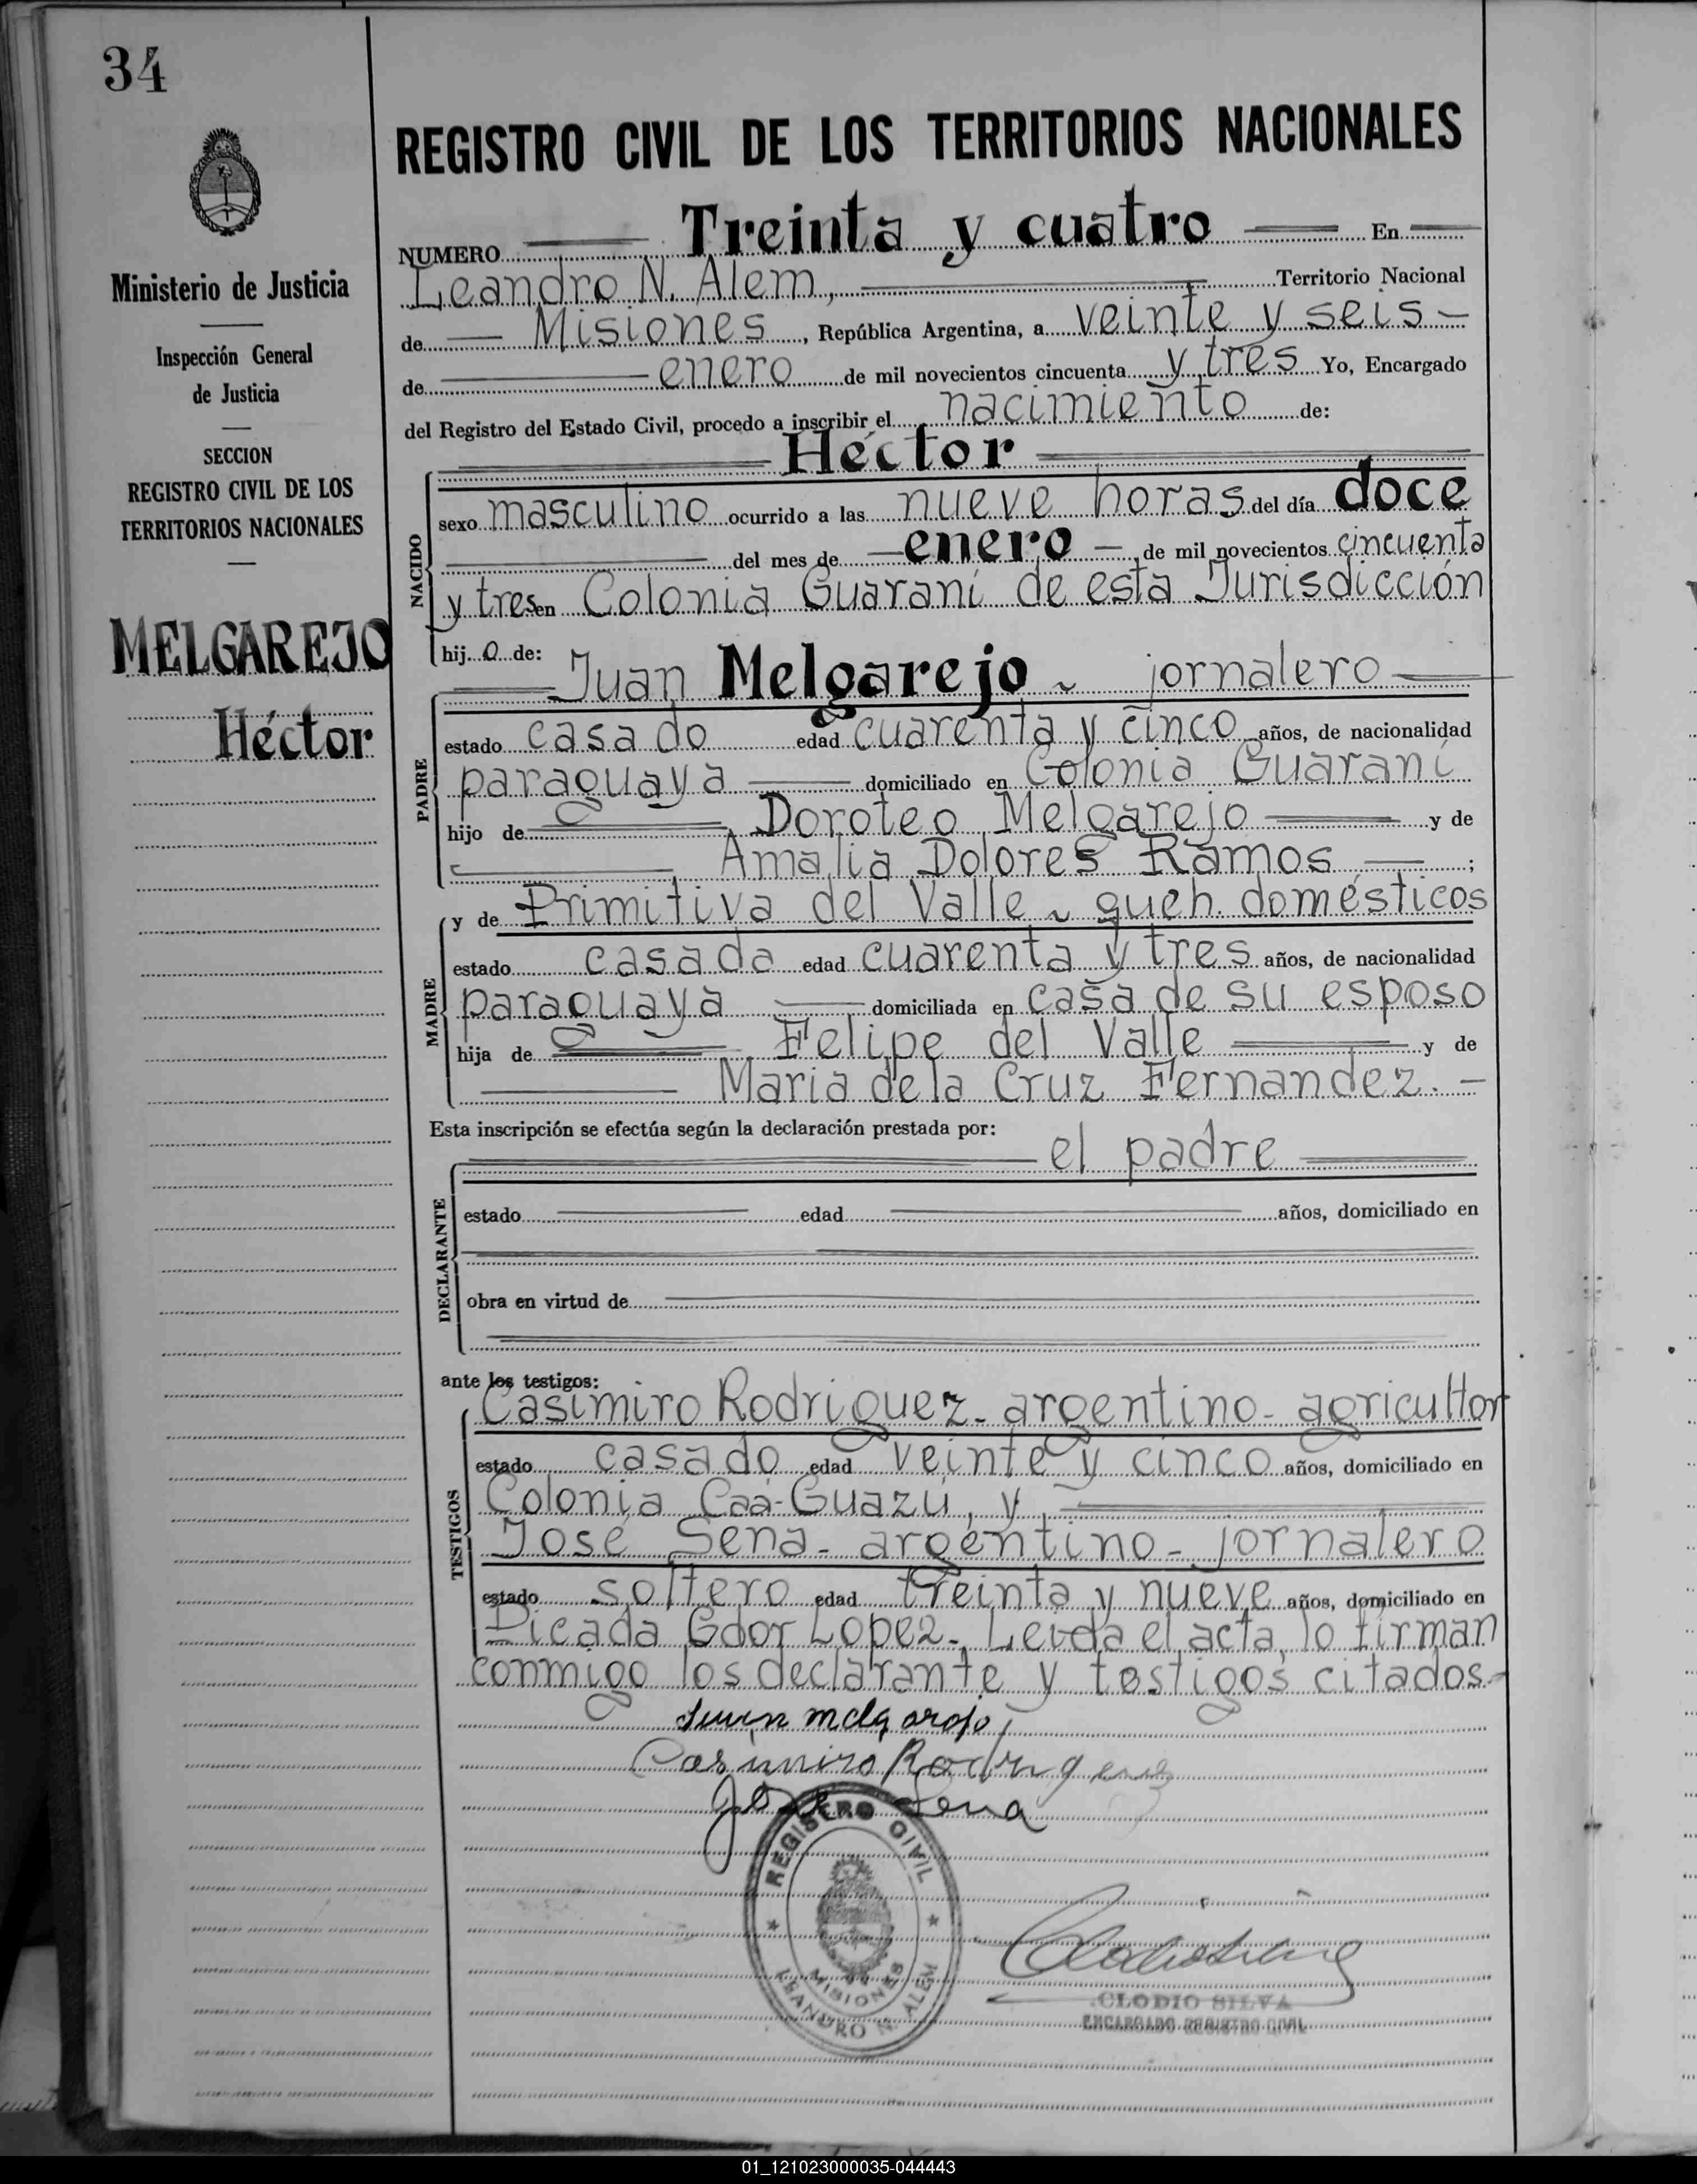 34
Ministerio de Justicia
Inspección General
de Justicia
SECCION
REGISTRO CIVIL DE LOS
TERRITORIOS NACIONALES
MELGAREJO
Héctor
REGISTRO CIVIL DE LOS TERRITORIOS NACIONALES
NUMERO Treinta y cuatro En
Leandro N. Alem, Territorio Nacional
de Misiones, República Argentina, a veinte y seis
de enero de mil novecientos cincuenta y tres Yo, Encargado
del Registro del Estado Civil, procedo a inscribir el nacimiento de:
Héctor
NACIDO
sexo masculino ocurrido a las nueve horas del día doce
del mes de enero de mil novecientos cincuenta
y tres en Colonia Guaraní de esta Jurisdicción
hijo de:
Juan Melgarejo ~ jornalero
PADRE
estado casado edad cuarenta y cinco años, de nacionalidad
paraguaya domiciliado en Colonia Guaraní
hijo de Doroteo Melgarejo y de
Amalia Dolores Ramos ;
y de Primitiva del Valle ~ queh. domésticos
MADRE
estado casada edad cuarenta y tres años, de nacionalidad
paraguaya domiciliada en casa de su esposo
hija de Felipe del Valle y de
Maria de la Cruz Fernandez. -
Esta inscripción se efectúa según la declaración prestada por:
el padre
DECLARANTE
estado edad años, domiciliado en
obra en virtud de
ante los testigos:
TESTIGOS
Casimiro Rodriguez- argentino- agricultor
estado casado edad veinte y cinco años, domiciliado en
Colonia Caá-Guazú, y
José Sena- argentino- jornalero
estado soltero edad treinta y nueve años, domiciliado en
Picada Gdor Lopez-, Leida el acta, lo firman
conmigo los declarante y testigos citados-
Juan melgarejo
Casimiro Rodriguez
José Sena
REGISTRO CIVIL
MISIONES
LEANDRO N. ALEM
CLODIO SILVA
ENCARGADO REGISTRO CIVIL
01_121023000035-044443